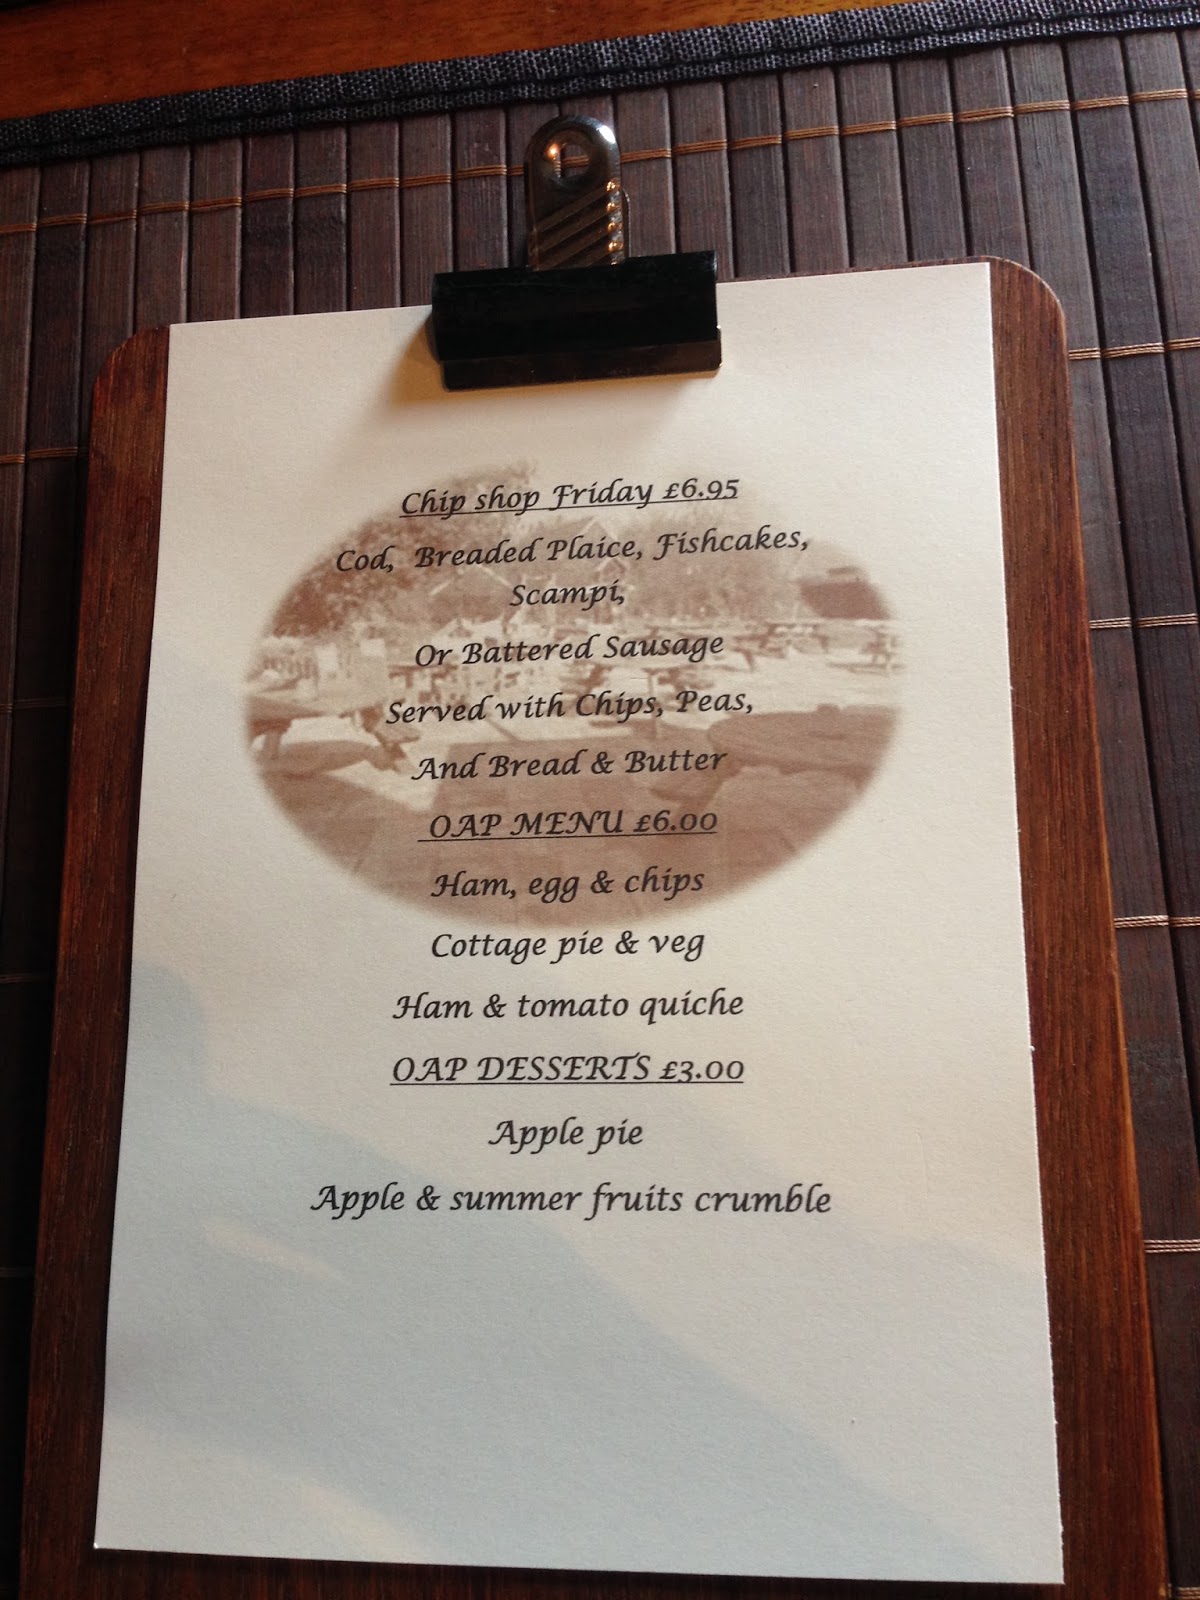 Chip shop Friday £6.95
Cod, Breaded Plaice, Fishcakes,
Scampi,
Or Battered Sausage
Served with Chips, Peas,
And Bread & Butter
OAP MENU £6.00
Ham, egg & chips
Cottage pie & veg
Ham & tomato quiche
OAP DESSERTS £3.00
Apple pie
Apple & summer fruits crumble